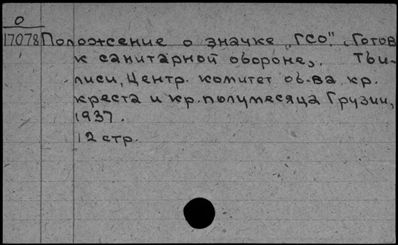 О
17078 Положение о значке „ГСО". „Готов
к санитарной обороне„. Тби-
лиси, Центр. комитет об-ва кр.
креста и кр. полумесяца Грузии,
1937.
12 стр.